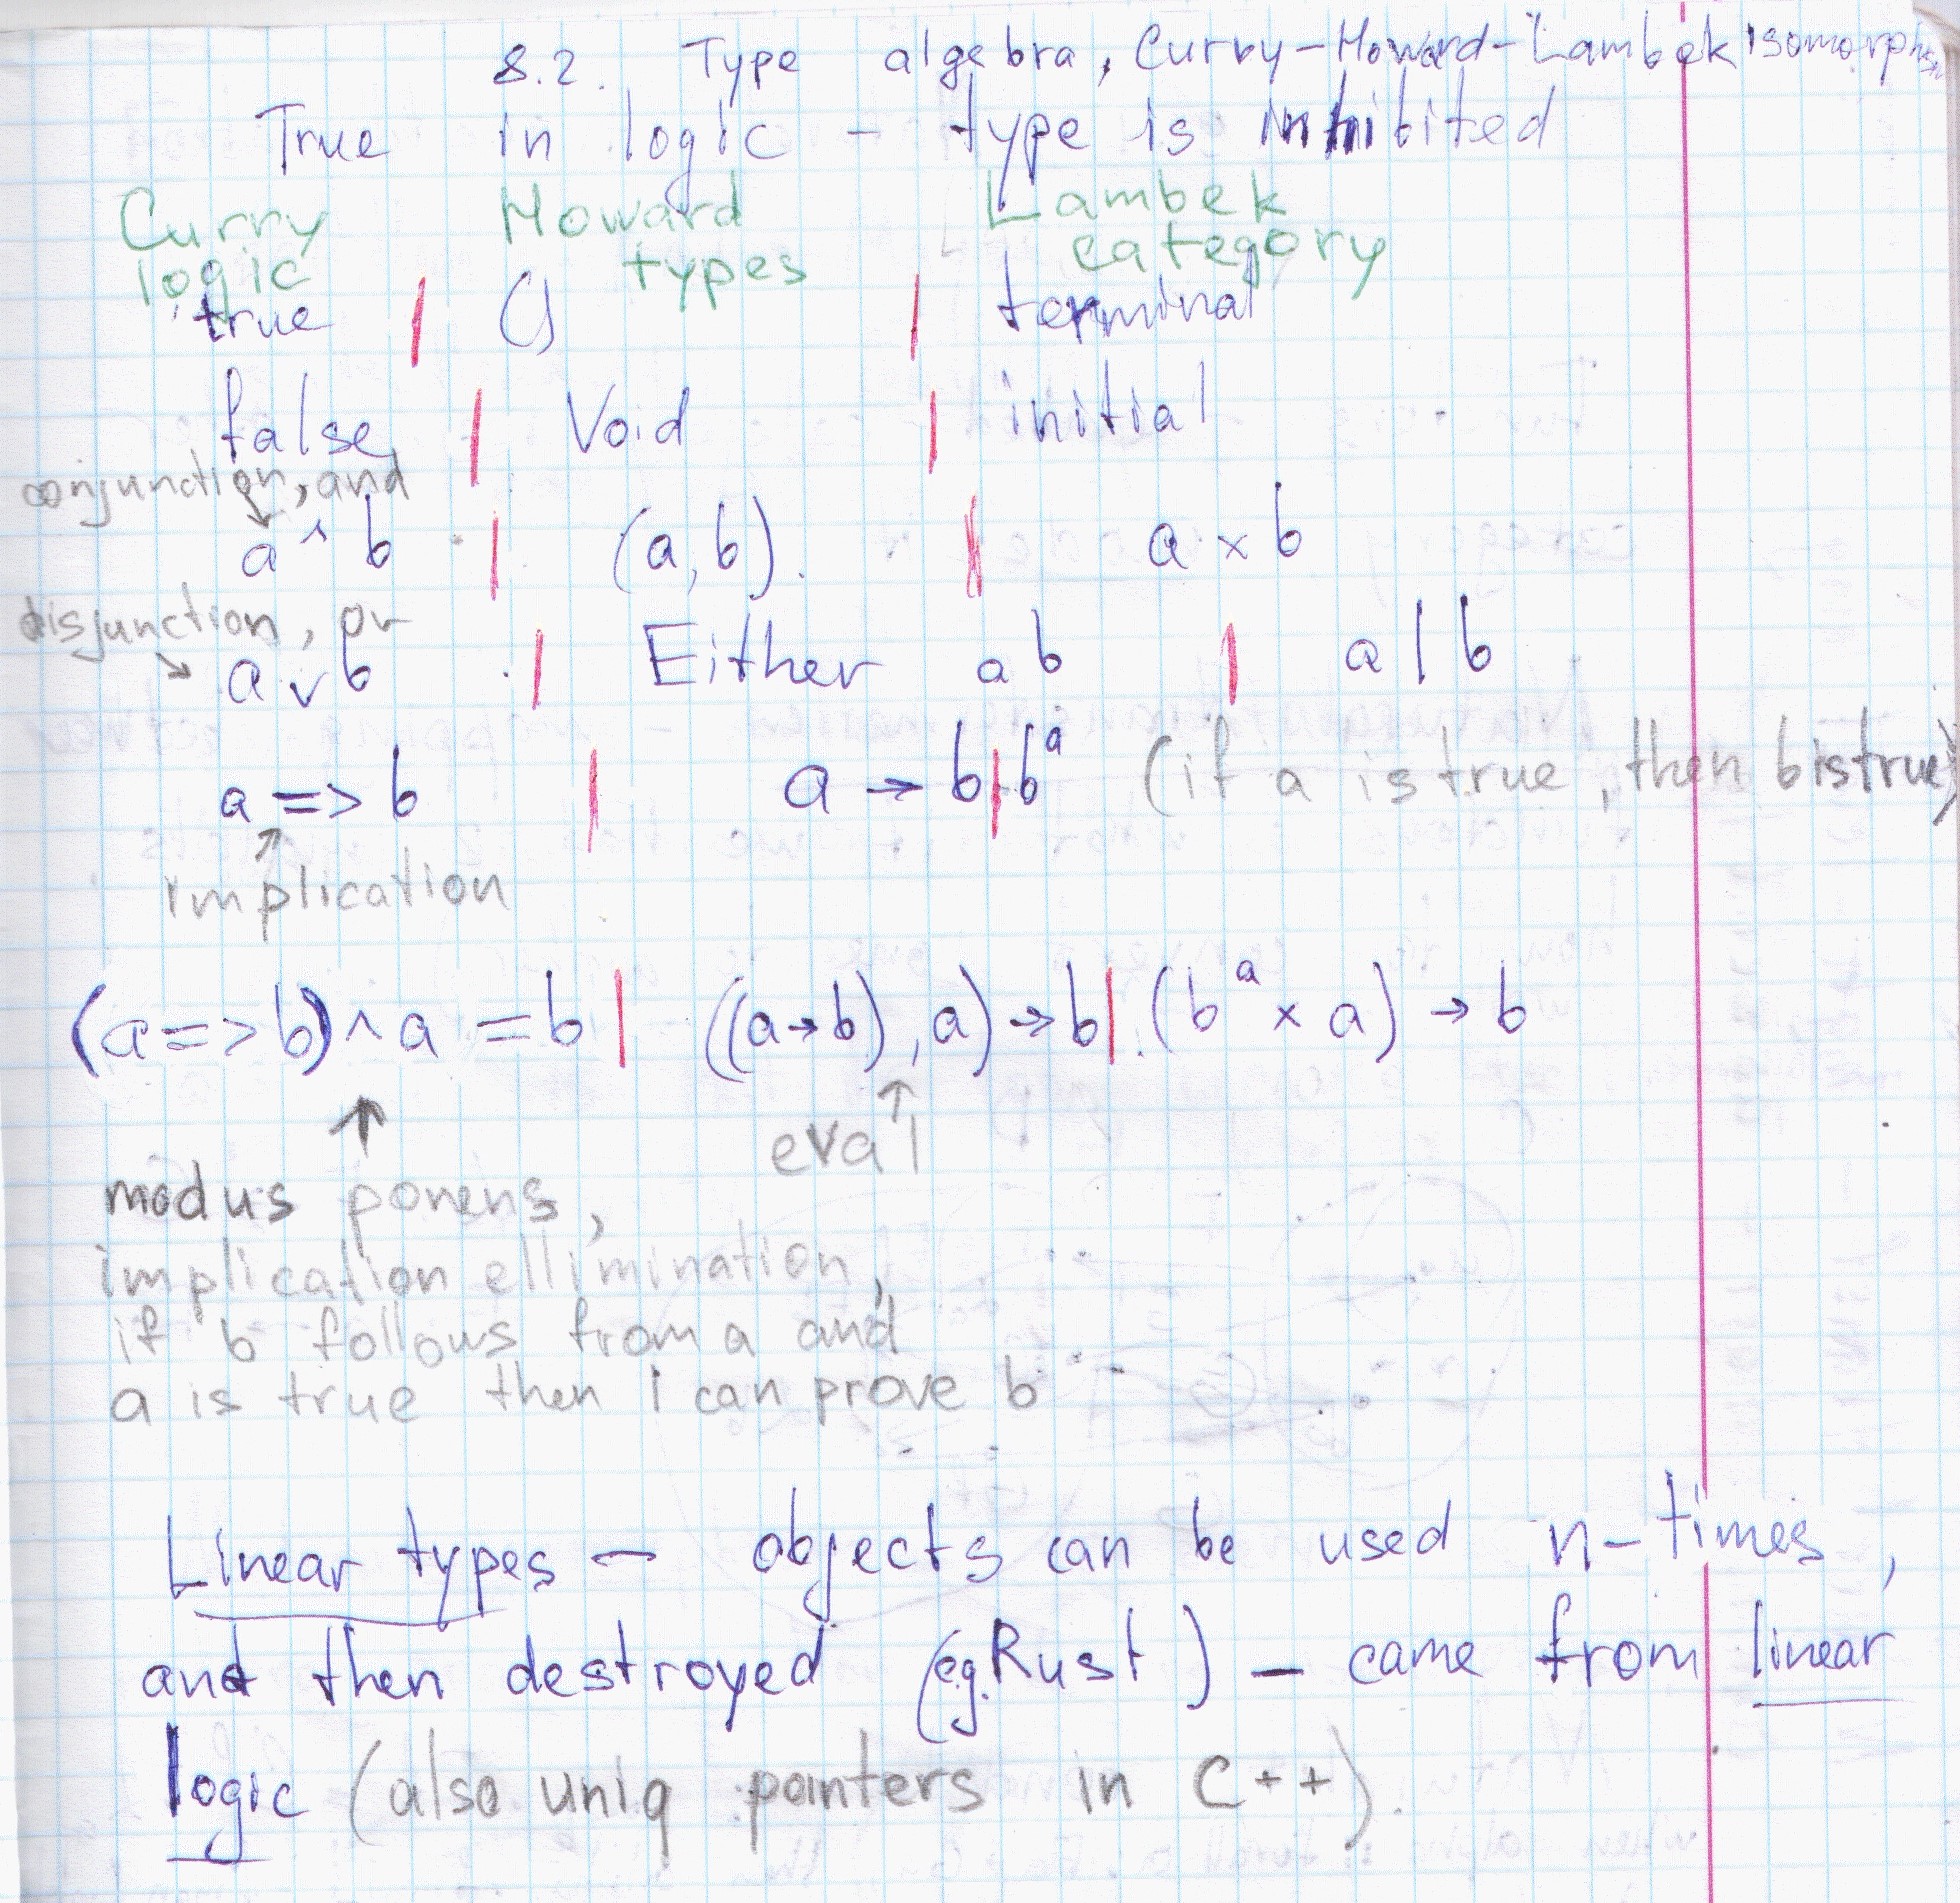 8.2. Type algebra, Curry-Howard-Lambek isomorphism
True in logic - type is inhibited
Curry Howard Lambek
logic types category
true | () | terminal
false | Void | initial
conjunction, and
a ^ b | (a, b). | a × b
disjunction, or
a v b | Either a b | a | b
a => b | a → b | bᵃ (if a is true, then b is true)
implication
(a => b) ^ a = b | ((a → b), a) → b | (bᵃ × a) → b
eval
modus ponens,
implication ellimination,
if b follows from a and
a is true then i can prove b
Linear types — objects can be used n-times,
and then destroyed (eg. Rust) — came from linear
logic (also uniq pointers in C++).